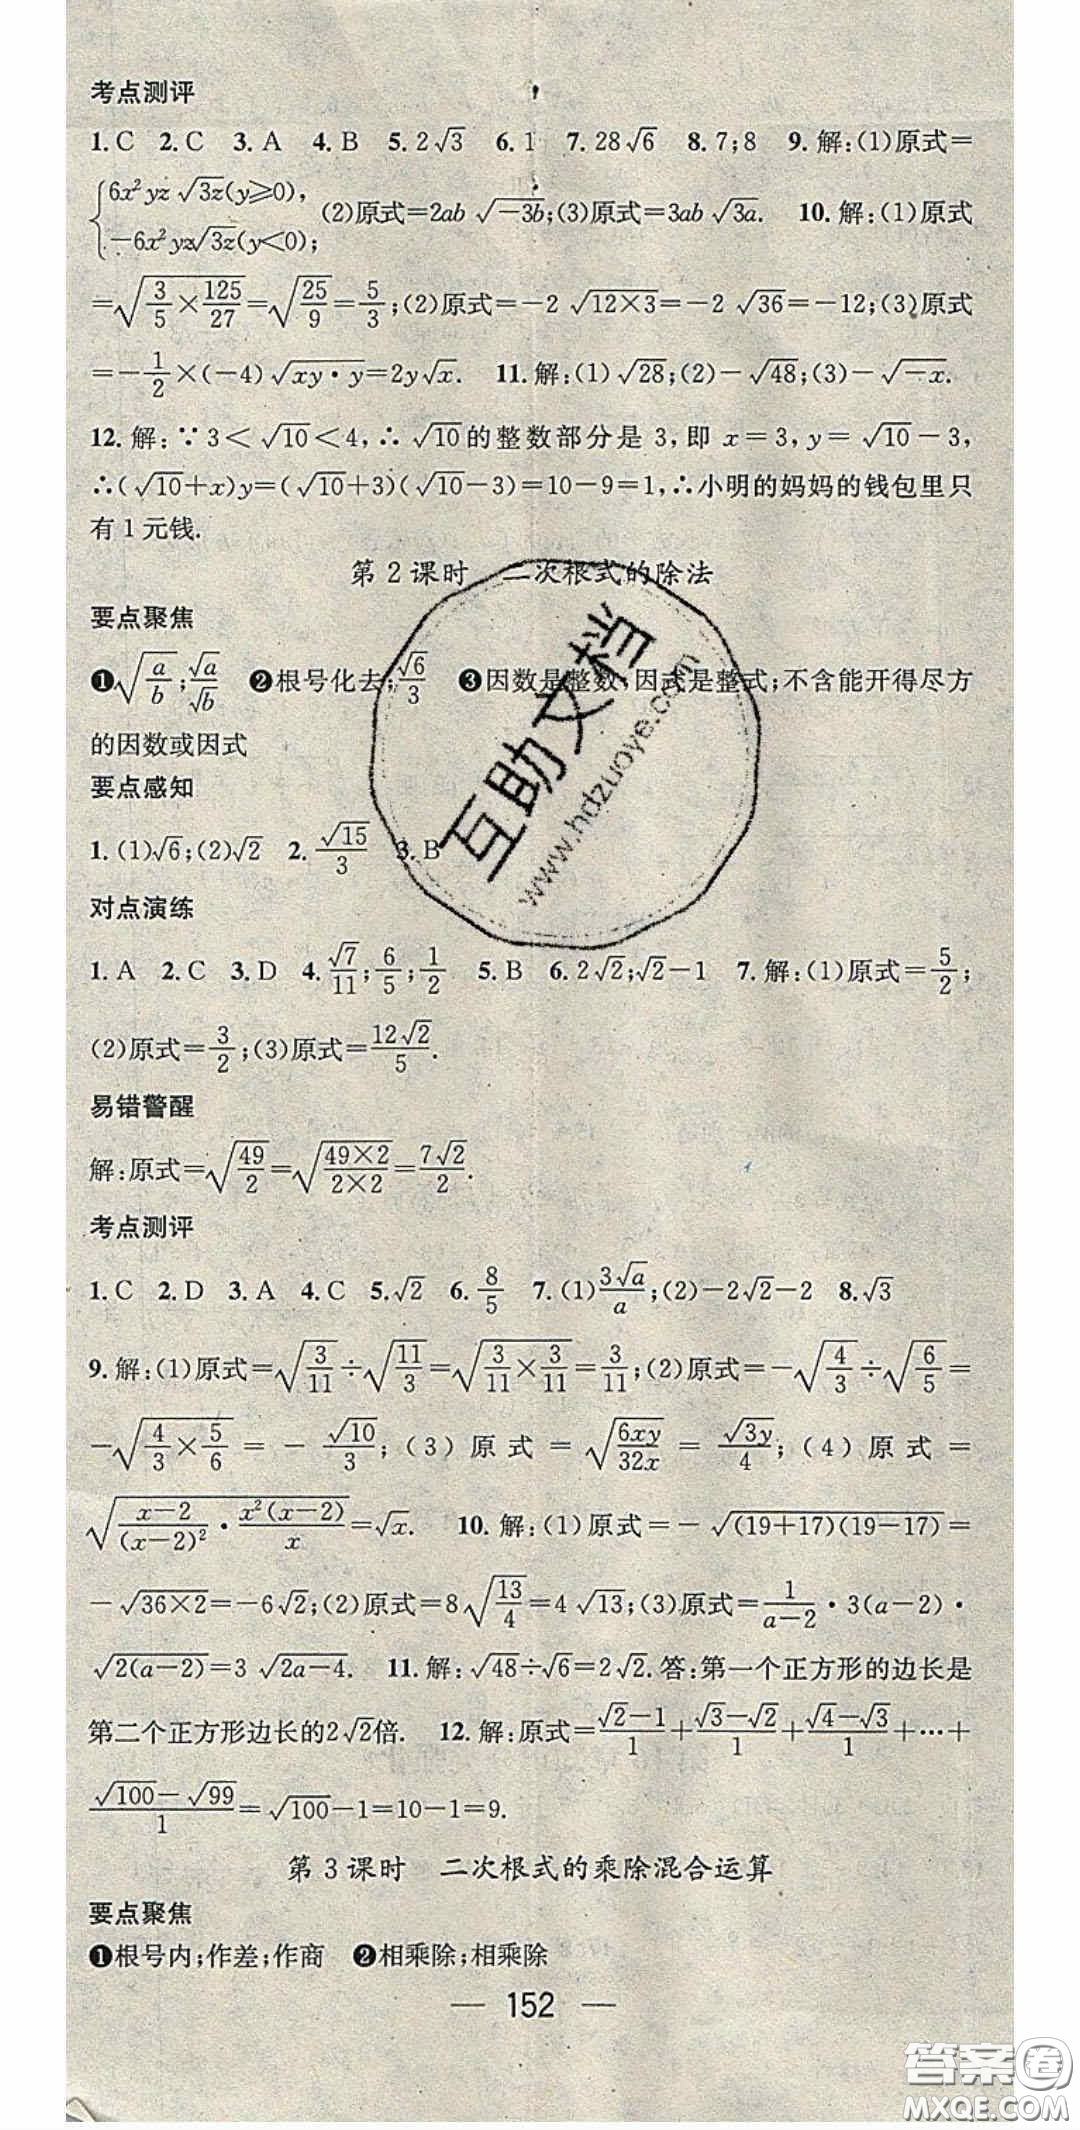 考点测评
1. C 2. C 3. A 4. B 5. 2√3 6. 1 7. 28√6 8. 7;8 9. 解:(1)原式=
{6x²yz√3z(y≥0), −6x²yz√3z(y<0); (2)原式=2ab√−3b;(3)原式=3ab√3a. 10. 解:(1)原式
=√(3/5×125/27)=√(25/9)=5/3;(2)原式=−2√(12×3)=−2√36=−12;(3)原式
=−1/2×(−4)√(xy·y)=2y√x. 11. 解:(1)√28;(2)−√48;(3)−√−x.
12. 解:∵3<√10<4,∴√10的整数部分是3,即x=3,y=√10−3,
∴(√10+x)y=(√10+3)(√10−3)=10−9=1,∴小明的妈妈的钱包里只
有1元钱.
第2课时 二次根式的除法
要点聚焦
❶√(a/b);√a/√b ❷根号化去;√6/3 ❸因数是整数,因式是整式;不含能开得尽方
的因数或因式
要点感知
1. (1)√6;(2)√2 2. √15/3 3. B
对点演练
1. A 2. C 3. D 4. √7/11;6/5;1/2 5. B 6. 2√2;√2−1 7. 解:(1)原式=5/2;
(2)原式=3/2;(3)原式=12√2/5.
易错警醒
解:原式=√(49/2)=√(49×2/2×2)=7√2/2.
考点测评
1. C 2. D 3. A 4. C 5. √2 6. 8/5 7. (1)3√a/a;(2)−2√2−2 8. √3
9. 解:(1)原式=√(3/11)÷√(11/3)=√(3/11×3/11)=3/11;(2)原式=−√(4/3)÷√(6/5)=
−√(4/3×5/6)=−√10/3;(3)原式=√(6xy/32x)=√3y/4;(4)原式=
√((x−2)/(x−2)²·x²(x−2)/x)=√x. 10. 解:(1)原式=−√((19+17)(19−17))=
−√(36×2)=−6√2;(2)原式=8√(13/4)=4√13;(3)原式=1/(a−2)·3(a−2)·
√(2(a−2))=3√(2a−4). 11. 解:√48÷√6=2√2.答:第一个正方形的边长是
第二个正方形边长的2√2倍. 12. 解:原式=(√2−1)/1+(√3−√2)/1+(√4−√3)/1+⋯+
(√100−√99)/1=√100−1=10−1=9.
第3课时 二次根式的乘除混合运算
要点聚焦
❶根号内;作差;作商 ❷相乘除;相乘除
— 152 —
互助文档
www.hdzuoye.com
答案圈
MXQE.COM